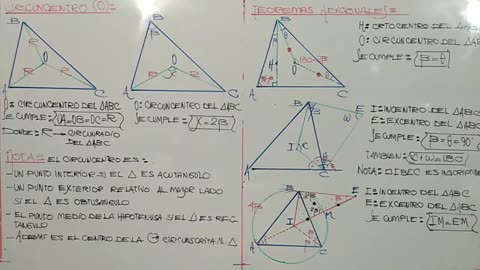 CIRCUNCENTRO (O)=
B
R
O
R
R
A
C
B
β
O
X
A
C
O= CIRCUNCENTRO DEL △ABC
SE CUMPLE: OA=OB=OC=R
DONDE: R → CIRCUNRADIO
DEL △ABC
O: CIRCUNCENTRO DEL △ABC
SE CUMPLE: X=2β
NOTA= EL CIRCUNCENTRO ES:
-UN PUNTO INTERIOR SI EL △ ES ACUTANGULO
-UN PUNTO EXTERIOR RELATIVO AL MAYOR LADO
SI EL △ ES OBTUSANGULO
-EL PUNTO MEDIO DE LA HIPOTENUSA SI EL △ ES REC
TANGULO
-ADEMAS ES EL CENTRO DE LA CIRCUNSCRITA AL △
TEOREMAS ADICIONALES=
B
θ
180-2θ
H
O
θ
A
C
H: ORTOCENTRO DEL △ABC
O: CIRCUNCENTRO DEL △ABC
SE CUMPLE: β=θ
B
E
ω
I
X
A
C
I: INCENTRO DEL △ABC
E: EXCENTRO DEL △ABC
SE CUMPLE: β=θ=90°
TAMBIEN: X+ω=180
NOTA: □IBEC ES INSCRIPTIBLE
B
E
M
I
A
C
I: INCENTRO DEL △ABC
E: EXCENTRO DEL △ABC
SE CUMPLE: IM=EM